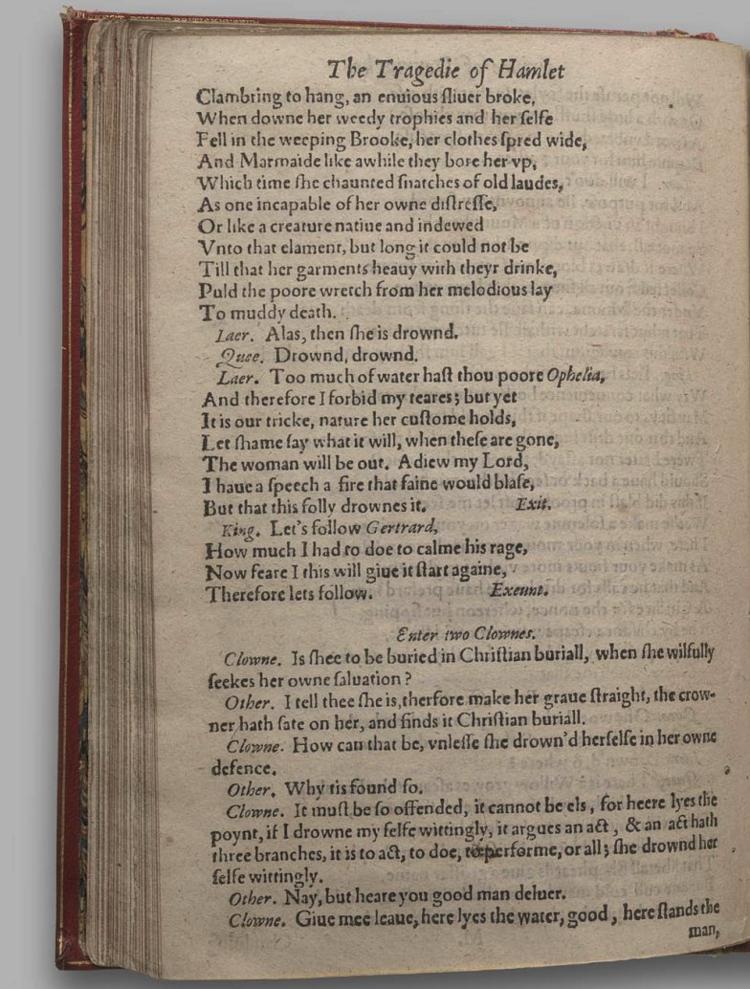 The Tragedie of Hamlet
Clambring to hang, an enuious ſliuer broke,
When downe her weedy trophies and her ſelfe
Fell in the weeping Brooke, her clothes ſpred wide,
And Marmaide like awhile they bore her vp,
Which time ſhe chaunted ſnatches of old laudes,
As one incapable of her owne diſtreſſe,
Or like a creature natiue and indewed
Vnto that elament, but long it could not be
Till that her garments heauy with theyr drinke,
Puld the poore wretch from her melodious lay
To muddy death.
Laer. Alas, then ſhe is drownd.
Quee. Drownd, drownd.
Laer. Too much of water haſt thou poore Ophelia,
And therefore I forbid my teares; but yet
It is our tricke, nature her cuſtome holds,
Let ſhame ſay what it will, when theſe are gone,
The woman will be out. Adiew my Lord,
I haue a ſpeech a fire that faine would blaſe,
But that this folly drownes it. Exit.
King. Let's follow Gertrard,
How much I had to doe to calme his rage,
Now feare I this will giue it ſtart againe,
Therefore lets follow. Exeunt.
Enter two Clownes.
Clowne. Is ſhee to be buried in Chriſtian buriall, when ſhe wilfully
ſeekes her owne ſaluation?
Other. I tell thee ſhe is, therfore make her graue ſtraight, the crow-
ner hath ſate on her, and finds it Chriſtian buriall.
Clowne. How can that be, vnleſſe ſhe drown'd herſelfe in her owne
defence.
Other. Why tis found ſo.
Clowne. It muſt be ſo offended, it cannot be els, for heere lyes the
poynt, if I drowne my ſelfe wittingly, it argues an act, & an act hath
three branches, it is to act, to doe, to performe, or all; ſhe drownd her
ſelfe wittingly.
Other. Nay, but heare you good man deluer.
Clowne. Giue mee leaue, here lyes the water, good, here ſtands the
man,